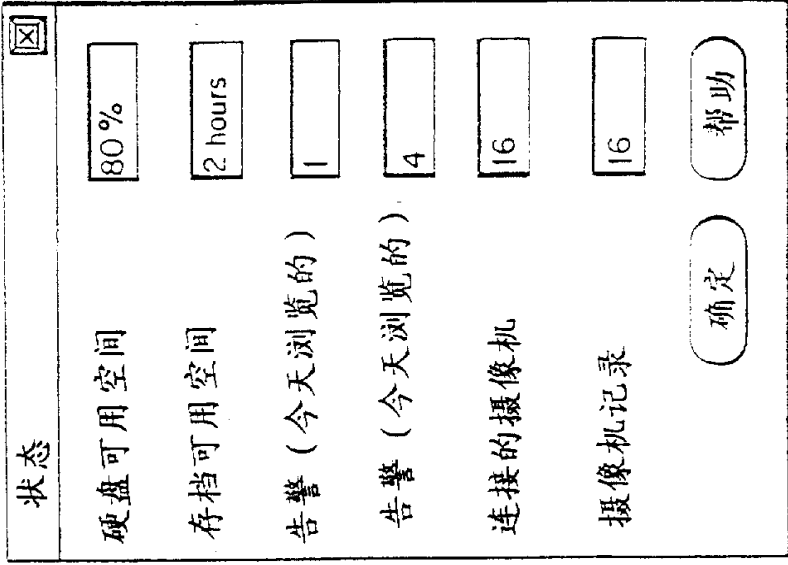 状态
硬盘可用空间 80%
存档可用空间 2 hours
告警(今天浏览的) 1
告警(今天浏览的) 4
连接的摄像机 16
摄像机记录 16
确定 帮助